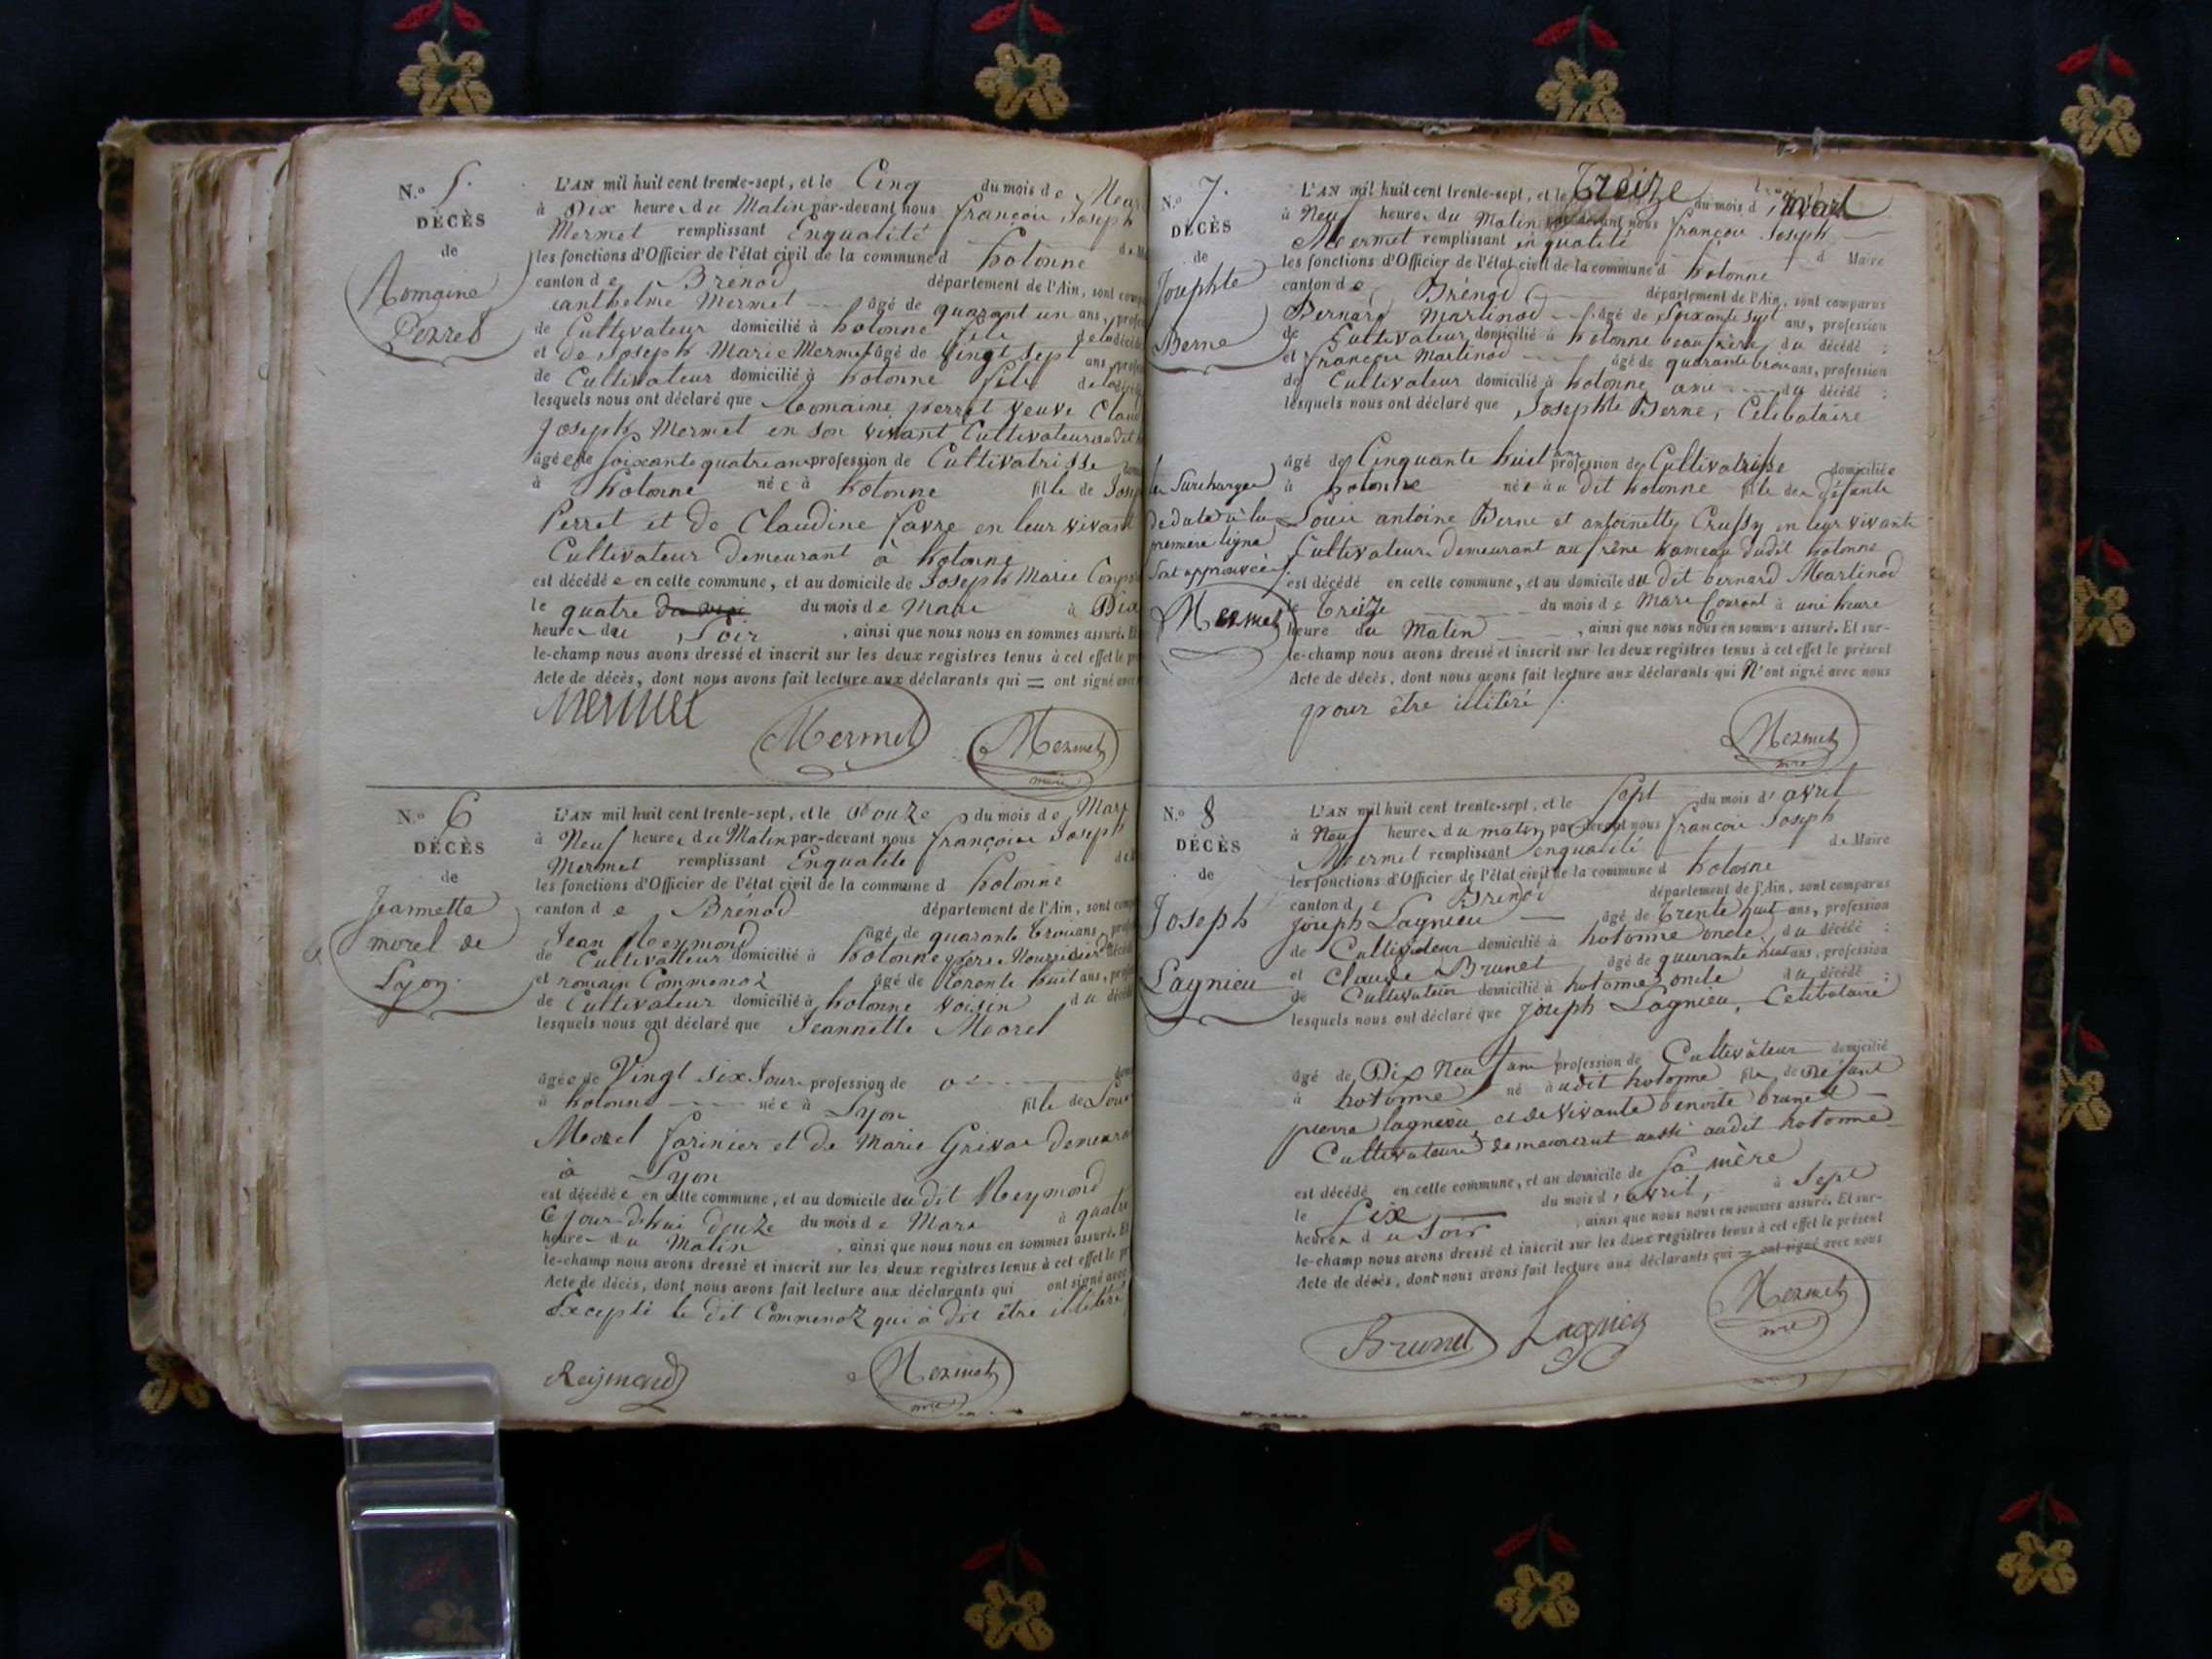 N.º 5.
DÉCÈS
de
Romaine
Perret
L'AN mil huit cent trente-sept, et le Cinq du mois de
à Dix heures du Matin par-devant nous françois Joseph
Mermet remplissant Enqualité
les fonctions d'Officier de l'état civil de la commune d hotonne
canton de Brénod département de l'Ain, sont
anthelme Mermet âgé de quarant un ans,
de Cultivateur domicilié à hotonne fils
et de Joseph Marie Mermet âgé de Vingt Sept ans,
de Cultivateur domicilié à hotonne fils
lesquels nous ont déclaré que Romaine perret veuve
Joseph Mermet en son vivant Cultivateur
âgée de soixante quatre ans profession de Cultivatrisse
à hotonne née à hotonne fille de
Perret et de Claudine favre en leur vivant
Cultivateur demeurant à hotonne
est décédée en cette commune, et au domicile de Joseph Marie
le quatre du mois de Mars à
heures du Soir, ainsi que nous nous en sommes assuré.
le-champ nous avons dressé et inscrit sur les deux registres tenus à cet effet le
Acte de décès, dont nous avons fait lecture aux déclarants qui = ont signé avec
Mermet
Mermet
Mermet
maire
N.º 6
DÉCÈS
de
Jeannette
morel de
Lyon
L'AN mil huit cent trente-sept, et le douze du mois de Mars
à Neuf heures du Matin par-devant nous françois Joseph
Mermet remplissant Enqualité
les fonctions d'Officier de l'état civil de la commune d hotonne
canton de Brénod département de l'Ain, sont
Jean Reymond âgé de quarante trois ans,
de Cultivateur domicilié à hotonne père Nourricier
et romain Commenoz âgé de trente huit ans,
de Cultivateur domicilié à hotonne voisin du
lesquels nous ont déclaré que Jeannette Morel
âgée de Vingt Six Jours profession de
à hotonne née à Lyon fille de
Morel farinier et de Marie Grivas
à Lyon
est décédée en cette commune, et au domicile du dit Reymond
Ce jour d'hui douze du mois de Mars à quatre
heures du Matin, ainsi que nous nous en sommes assuré.
le-champ nous avons dressé et inscrit sur les deux registres tenus à cet effet le
Acte de décès, dont nous avons fait lecture aux déclarants qui ont signé avec
Excepté le dit Commenoz qui à dit être illitéré
Reymond
Mermet
mre
N.º 7.
DÉCÈS
de
Josephte
Berne
L'AN mil huit cent trente-sept, et le Treize du mois d mars
à Neuf heures du Matin par-devant nous françois Joseph
Mermet remplissant en qualité d Maire
les fonctions d'Officier de l'état civil de la commune d hotonne
canton de Brénod département de l'Ain, sont comparus
Bernard Martinod âgé de Soixante Sept ans, profession
de Cultivateur domicilié à hotonne beaufrère du décédé :
et françois Martinod âgé de quarante trois ans, profession
de Cultivateur domicilié à hotonne ami du décédé :
lesquels nous ont déclaré que Josephte Berne, Célibataire
âgé de Cinquante huit ans profession de Cultivatrisse domiciliée
à hotonne née au dit hotonne fille de défunts
Louis antoine Berne et antoinette Crussy en leur vivants
Cultivateurs demeurant au frêne hameau dudit hotonne
est décédé en cette commune, et au domicile du dit bernard Martinod
le Treize du mois de Mars Courant à une heure
heure du Matin, ainsi que nous nous en sommes assuré. Et sur-
le-champ nous avons dressé et inscrit sur les deux registres tenus à cet effet le présent
Acte de décès, dont nous avons fait lecture aux déclarants qui N'ont signé avec nous
pour être illitéré
Mermet
mre
la Surcharge
de date à la
première ligne
Sont approuvée
Mermet
N.º 8
DÉCÈS
de
Joseph
Lagnieu
L'AN mil huit cent trente-sept, et le sept du mois d'avril
à Neuf heures du matin par-devant nous françois Joseph
Mermet remplissant enqualité de Maire
les fonctions d'Officier de l'état civil de la commune d hotonne
canton de Brénod département de l'Ain, sont comparus
joseph Lagnieu âgé de trente huit ans, profession
de Cultivateur domicilié à hotonne oncle du décédé :
et Claude Brunet âgé de quarante huit ans, profession
de Cultivateur domicilié à hotonne oncle du décédé :
lesquels nous ont déclaré que joseph Lagnieu, Célibataire
âgé de Dix Neuf ans profession de Cultivateur domicilié
à hotonne né audit hotonne fils de Défunt
pierre lagnieu et de vivante benoîte brunet
Cultivateurs demeurant aussi audit hotonne
est décédé en cette commune, et au domicile de Sa mère
le Six du mois d'avril, à Sept
heures du Soir, ainsi que nous nous en sommes assuré. Et sur-
le-champ nous avons dressé et inscrit sur les deux registres tenus à cet effet le présent
Acte de décès, dont nous avons fait lecture aux déclarants qui = ont signé avec nous
Brunet
Lagnieu
Mermet
mre